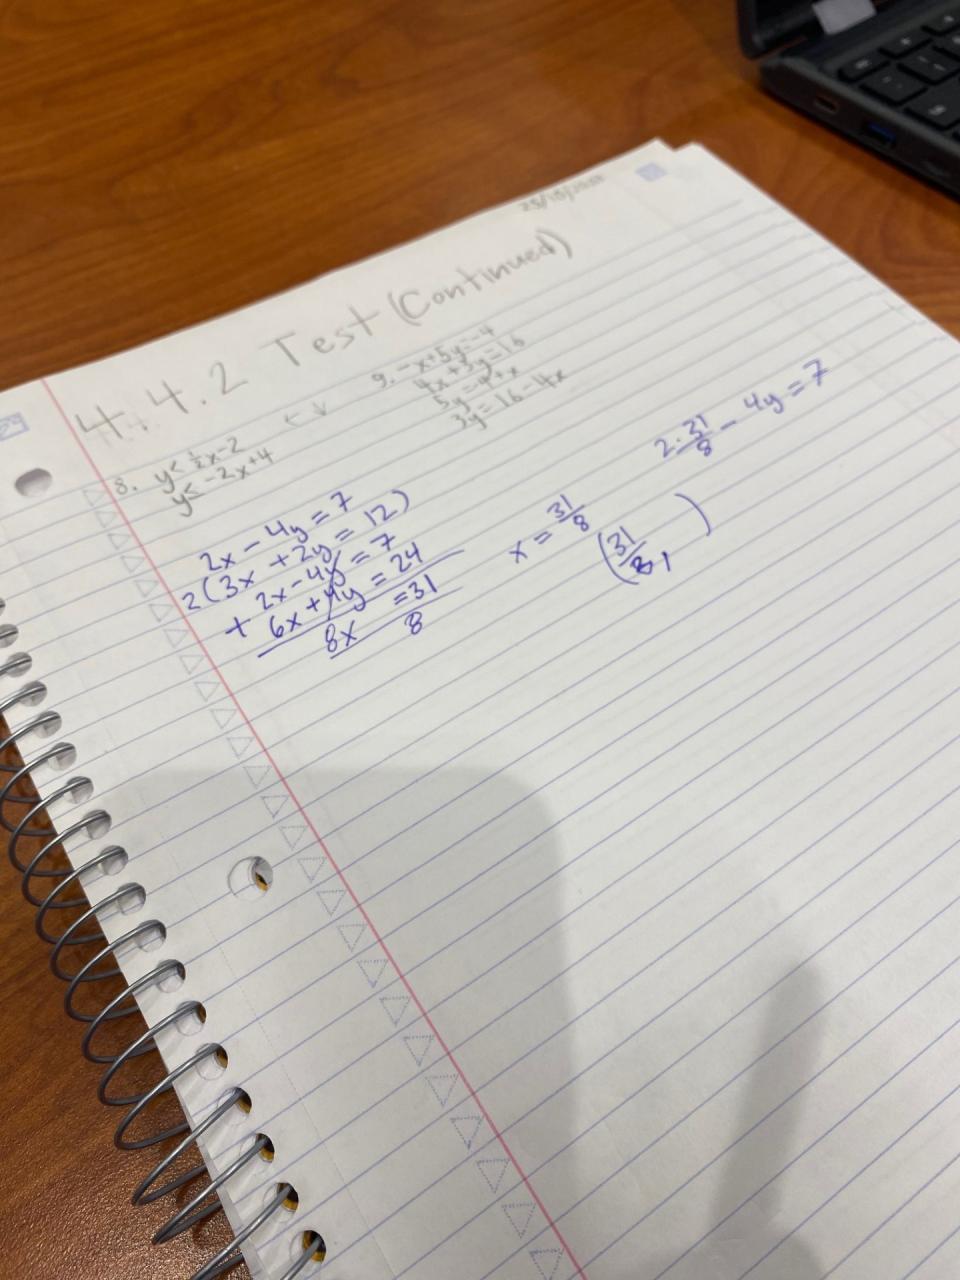 4.4.2 Test (Continued)
8. y < 1/2x - 2
y ≤ -2x + 4
← ↓
9. -x + 5y = -4
4x + 3y = 16
5y = -4 + x
3y = 16 - 4x
2x - 4y = 7
2(3x + 2y = 12)
2x - 4y = 7
+ 6x + 4y = 24
8x = 31
8
x = 31/8
(31/8, )
2 · 31/8 - 4y = 7